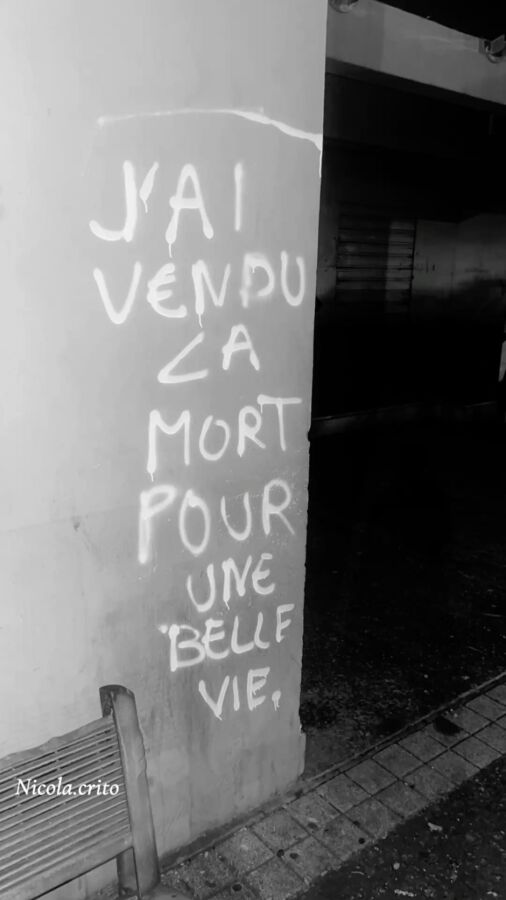 J'AI
VENDU
LA
MORT
POUR
UNE
BELLE
VIE.
Nicola.crito